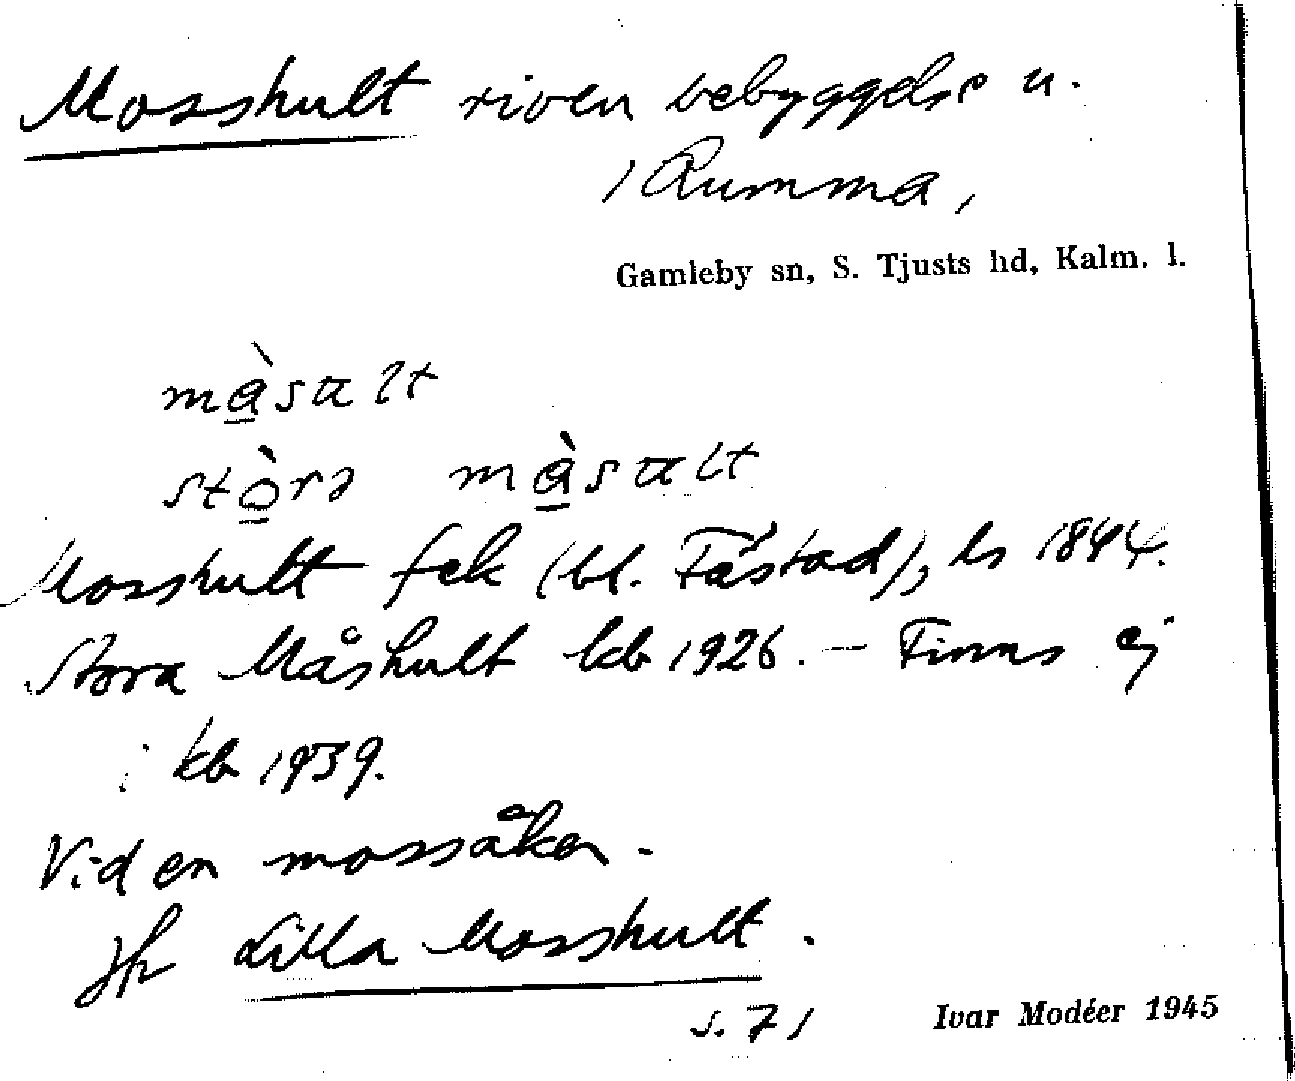 Mosshult riven bebyggelse u.
1 Rumma,
Gamleby sn, S. Tjusts hd, Kalm. l.
må̀sult
stò̱rə må̀sult
Mosshult fek (bl. Fåstad), ls 1844.
Stora Måshult kb 1926. – Finns ej
i kb 1939.
Vid en mossåker.
Jfr Lilla Mosshult.
s. 71
Ivar Modéer 1945